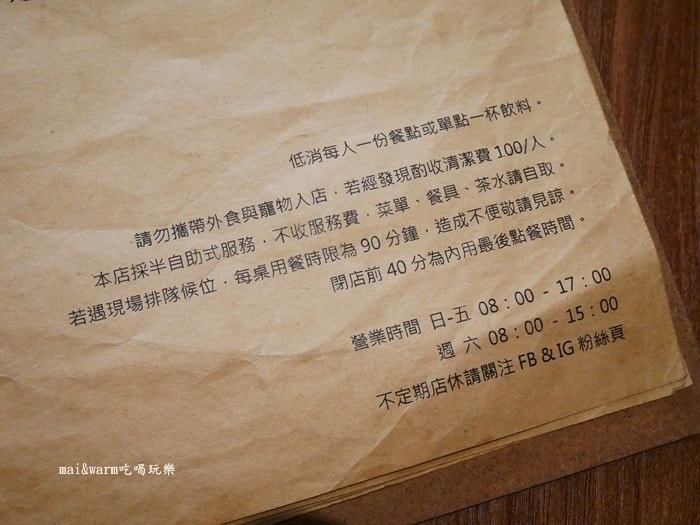 低消每人一份餐點或單點一杯飲料。
請勿攜帶外食與寵物入店，若經發現酌收清潔費 100/人。
本店採半自助式服務，不收服務費，菜單、餐具、茶水請自取。
若遇現場排隊候位，每桌用餐時限為 90 分鐘，造成不便敬請見諒。
閉店前 40 分為內用最後點餐時間。
營業時間 日-五 08：00 - 17：00
週 六 08：00 - 15：00
不定期店休請關注 FB & IG 粉絲頁
mai&warm吃喝玩樂